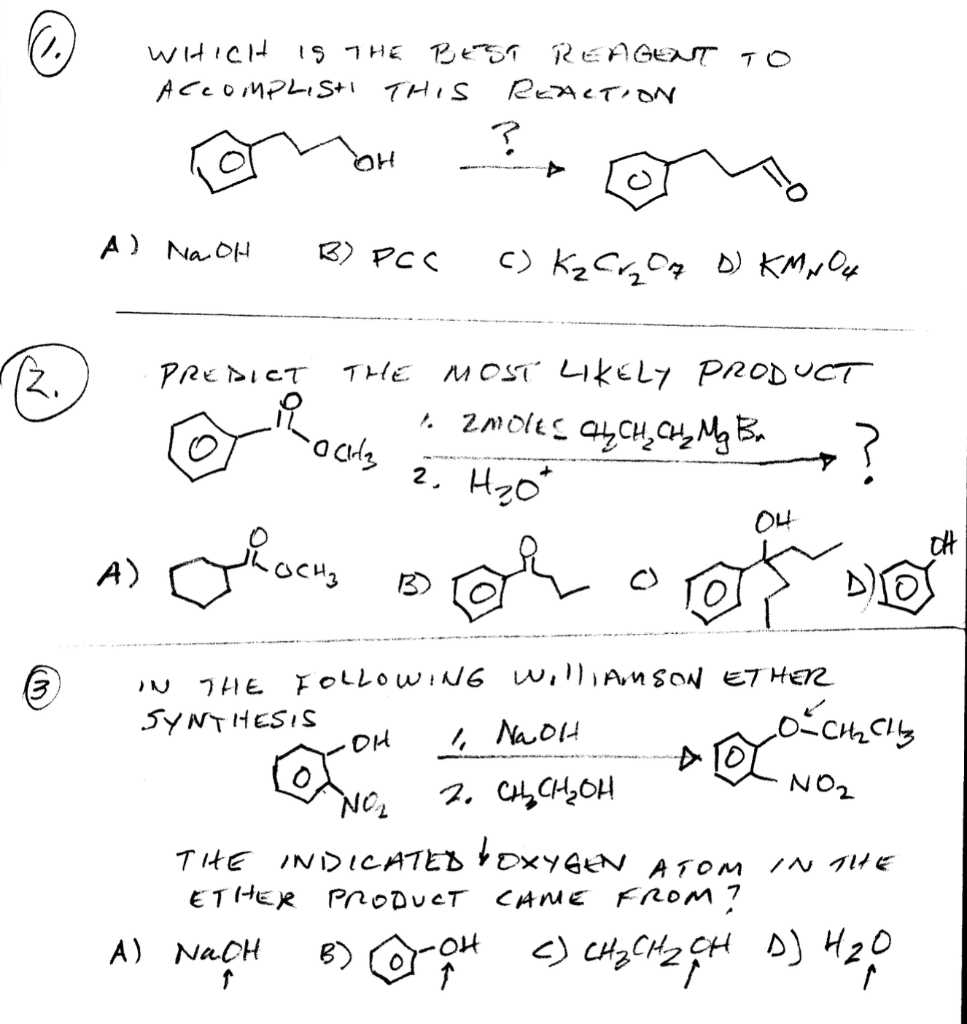 1.
WHICH IS THE BEST REAGENT TO
ACCOMPLISH THIS REACTION
?
OH
O
A) NaOH B) PCC C) K₂Cr₂O₇ D) KMNO₄
2.
PREDICT THE MOST LIKELY PRODUCT
O
OCH₃
1. 2MOLES CH₃CH₂CH₂MgBr
2. H₃O⁺
?
A) O OCH₃ B) O C) OH D) OH
3
IN THE FOLLOWING WILLIAMSON ETHER
SYNTHESIS
OH
NO₂
1. NaOH
2. CH₃CH₂OH
O-CH₂CH₃
NO₂
THE INDICATED ↓ OXYGEN ATOM IN THE
ETHER PRODUCT CAME FROM?
A) NaOH B) -OH C) CH₃CH₂OH D) H₂O